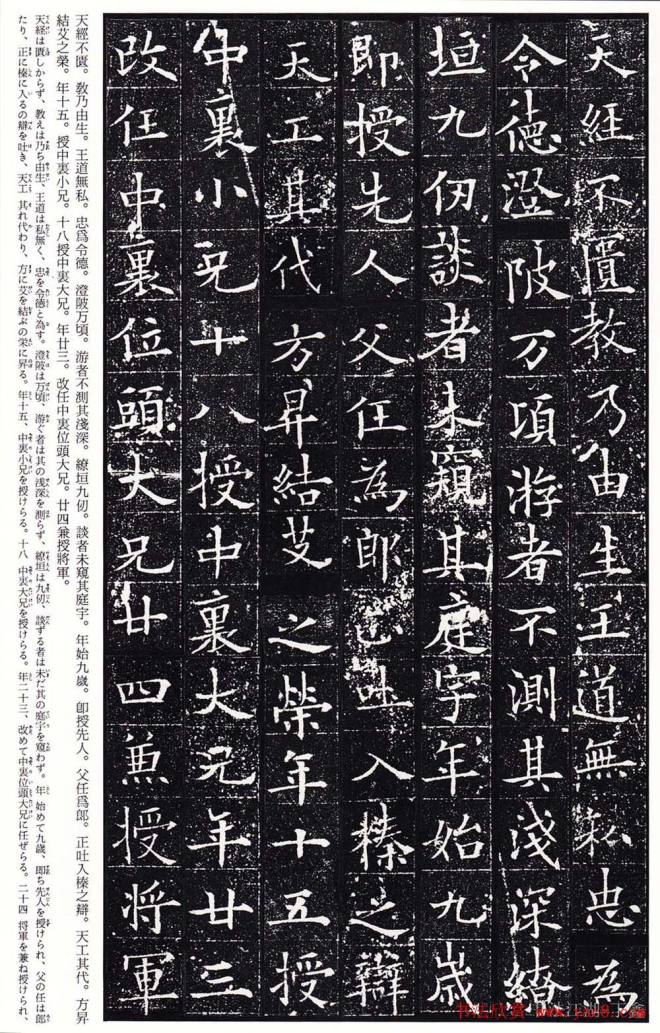 天經不匱教乃由生王道無私忠為
令德澄陂万頃游者不測其淺深繚
垣九仞談者未窺其庭宇年始九歲
即授先人父任為郎正吐入榛之辯
天工其代方昇結艾之榮年十五授
中裏小兄十八授中裏大兄年廿三
改任中裏位頭大兄廿四兼授将軍
天經不匱。敎乃由生。王道無私。忠爲令德。澄陂万頃。游者不測其淺深。繚垣九仞。談者未窺其庭宇。年始九歲。卽授先人。父任爲郎。正吐入榛之辯。天工其代。方昇
結艾之榮。年十五。授中裏小兄。十八授中裏大兄。年廿三。改任中裏位頭大兄。廿四兼授將軍。
天経は匱しからず、教えは乃ち由生、王道は私無く、忠を令徳と為す。澄陂は万頃、游ぐ者は其の浅深を測らず、繚垣は九仞、談ずる者は未だ其の庭宇を窺わず。年 始めて九歳、即ち先人を授けられ、父の任は郎
たり、正に榛に入るの辯を吐き、天工 其れ代わり、方に艾を結ぶの栄に昇る。年十五、中裏小兄を授けらる。十八 中裏大兄を授けらる。年二十三、改めて中裏位頭大兄に任ぜらる。二十四 将軍を兼ね授けられ、
书法欣赏